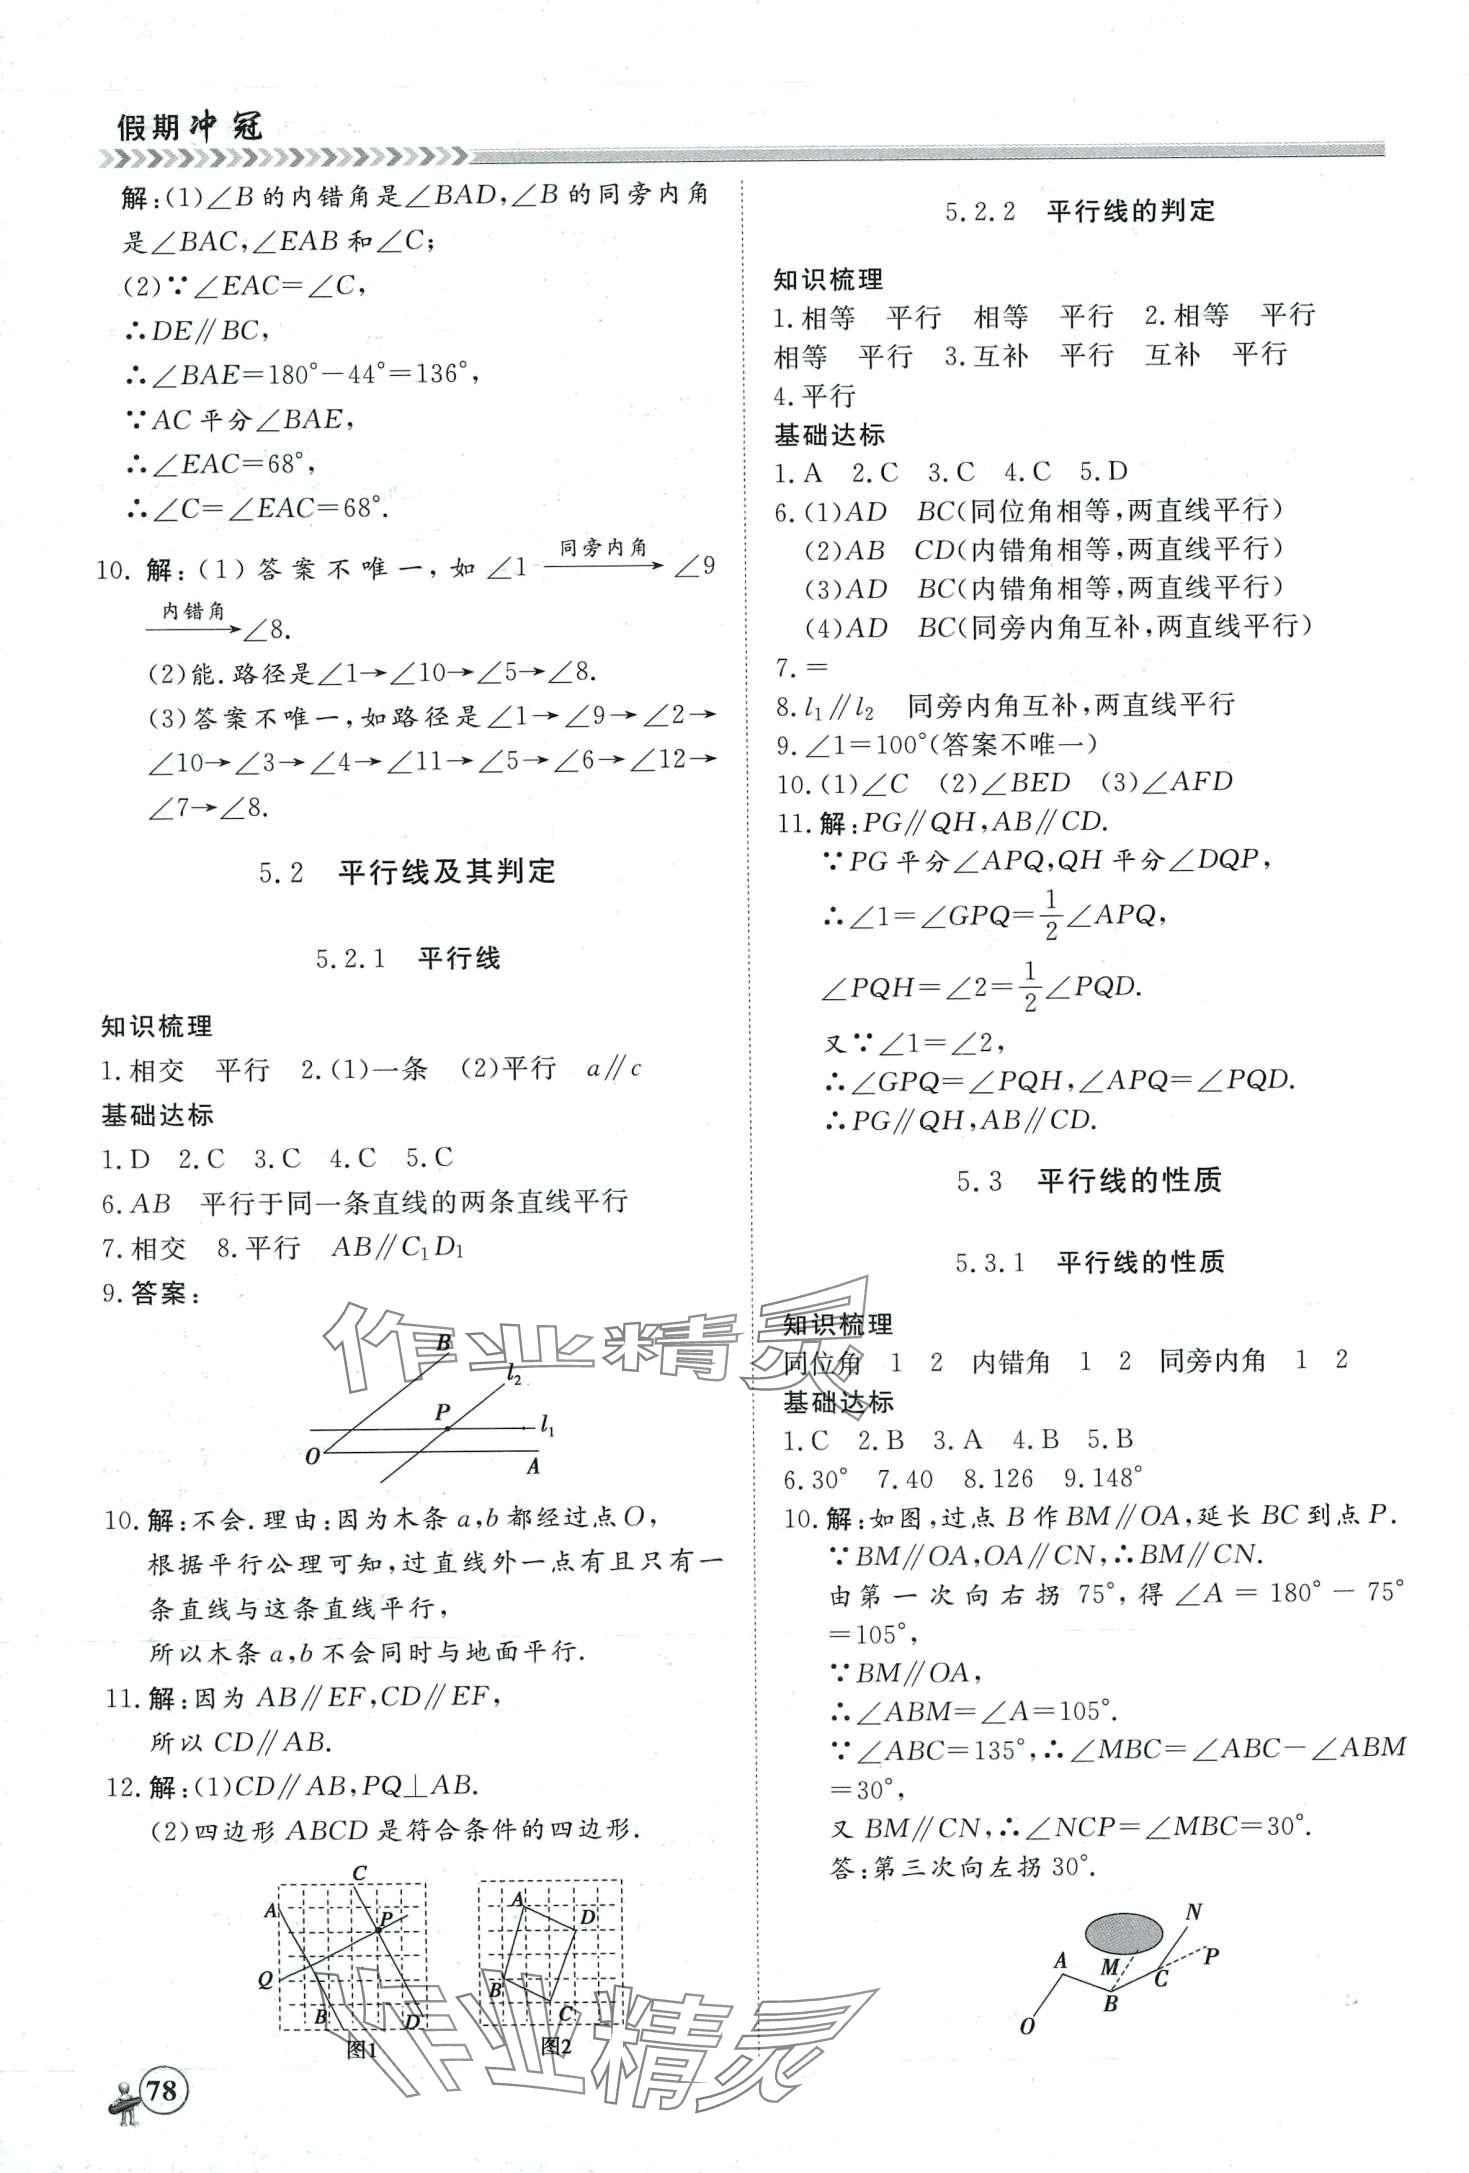 假期冲冠
解:(1)∠B的内错角是∠BAD,∠B的同旁内角
是∠BAC,∠EAB和∠C;
(2)∵∠EAC=∠C,
∴DE∥BC,
∴∠BAE=180°-44°=136°,
∵AC平分∠BAE,
∴∠EAC=68°,
∴∠C=∠EAC=68°.
10. 解:(1)答案不唯一,如∠1 同旁内角→ ∠9
内错角→∠8.
(2)能.路径是∠1→∠10→∠5→∠8.
(3)答案不唯一,如路径是∠1→∠9→∠2→
∠10→∠3→∠4→∠11→∠5→∠6→∠12→
∠7→∠8.
5.2 平行线及其判定
5.2.1 平行线
知识梳理
1.相交 平行 2.(1)一条 (2)平行 a∥c
基础达标
1.D 2.C 3.C 4.C 5.C
6.AB 平行于同一条直线的两条直线平行
7.相交 8.平行 AB∥C₁D₁
9.答案:
B
l₂
P
l₁
O
A
10.解:不会.理由:因为木条a,b都经过点O,
根据平行公理可知,过直线外一点有且只有一
条直线与这条直线平行,
所以木条a,b不会同时与地面平行.
11.解:因为AB∥EF,CD∥EF,
所以CD∥AB.
12.解:(1)CD∥AB,PQ⊥AB.
(2)四边形ABCD是符合条件的四边形.
C
A
P
Q
B
D
图1
A
D
B
C
图2
78
5.2.2 平行线的判定
知识梳理
1.相等 平行 相等 平行 2.相等 平行
相等 平行 3.互补 平行 互补 平行
4.平行
基础达标
1.A 2.C 3.C 4.C 5.D
6.(1)AD BC(同位角相等,两直线平行)
(2)AB CD(内错角相等,两直线平行)
(3)AD BC(内错角相等,两直线平行)
(4)AD BC(同旁内角互补,两直线平行)
7.=
8.l₁∥l₂ 同旁内角互补,两直线平行
9.∠1=100°(答案不唯一)
10.(1)∠C (2)∠BED (3)∠AFD
11.解:PG∥QH,AB∥CD.
∵PG平分∠APQ,QH平分∠DQP,
∴∠1=∠GPQ=1/2∠APQ,
∠PQH=∠2=1/2∠PQD.
又∵∠1=∠2,
∴∠GPQ=∠PQH,∠APQ=∠PQD.
∴PG∥QH,AB∥CD.
5.3 平行线的性质
5.3.1 平行线的性质
知识梳理
同位角 1 2 内错角 1 2 同旁内角 1 2
基础达标
1.C 2.B 3.A 4.B 5.B
6.30° 7.40 8.126 9.148°
10.解:如图,过点B作BM∥OA,延长BC到点P.
∵BM∥OA,OA∥CN,∴BM∥CN.
由第一次向右拐75°,得∠A=180°-75°
=105°,
∵BM∥OA,
∴∠ABM=∠A=105°.
∵∠ABC=135°,∴∠MBC=∠ABC-∠ABM
=30°,
又BM∥CN,∴∠NCP=∠MBC=30°.
答:第三次向左拐30°.
N
A
M
P
C
B
O
作业精灵
作业精灵